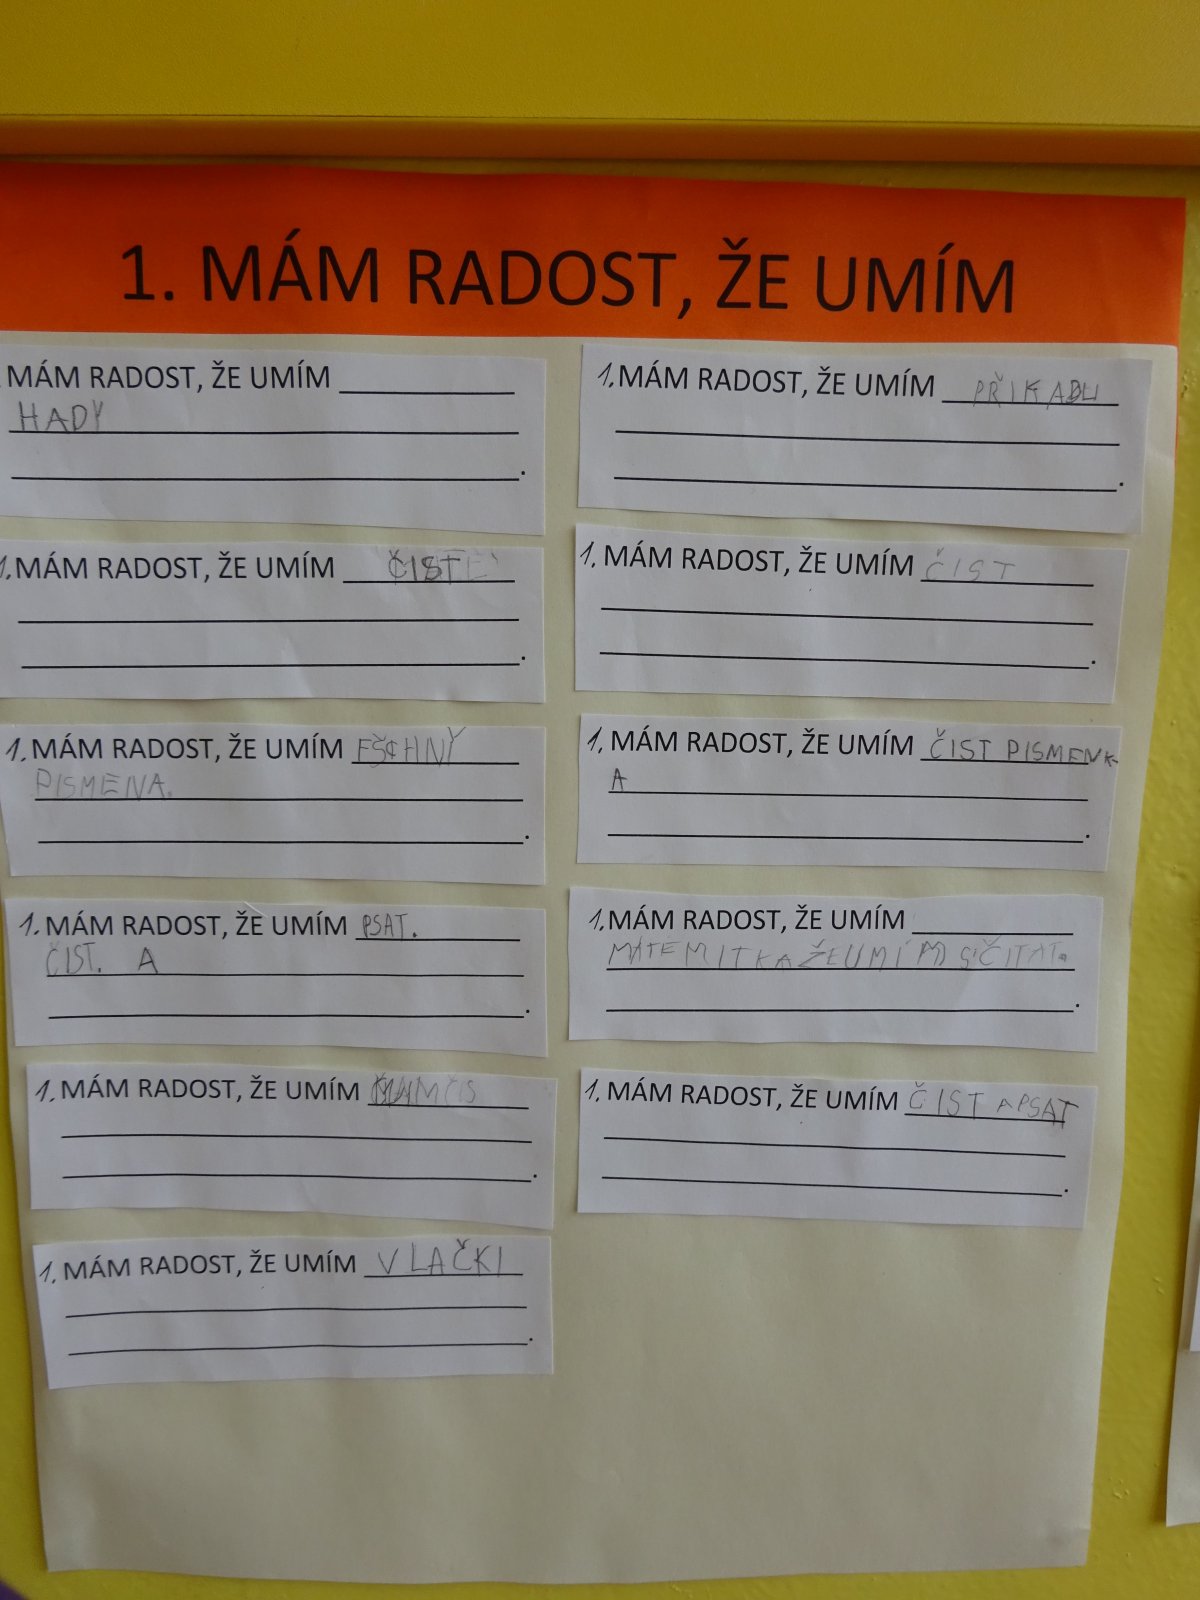 1. MÁM RADOST, ŽE UMÍM
MÁM RADOST, ŽE UMÍM
HADY
.
1. MÁM RADOST, ŽE UMÍM PŘIKADU
.
1. MÁM RADOST, ŽE UMÍM ČIST
.
1. MÁM RADOST, ŽE UMÍM ČIST
.
1. MÁM RADOST, ŽE UMÍM FŠCHNY
PISMENA.
.
1. MÁM RADOST, ŽE UMÍM ČIST PISMENK
A
.
1. MÁM RADOST, ŽE UMÍM PSAT.
ČIST. A
.
1. MÁM RADOST, ŽE UMÍM
MATEMITKAŽEUMÍM SČITAT.
.
1. MÁM RADOST, ŽE UMÍM
.
1. MÁM RADOST, ŽE UMÍM ČIST APSAT
.
1. MÁM RADOST, ŽE UMÍM VLAČKI
.